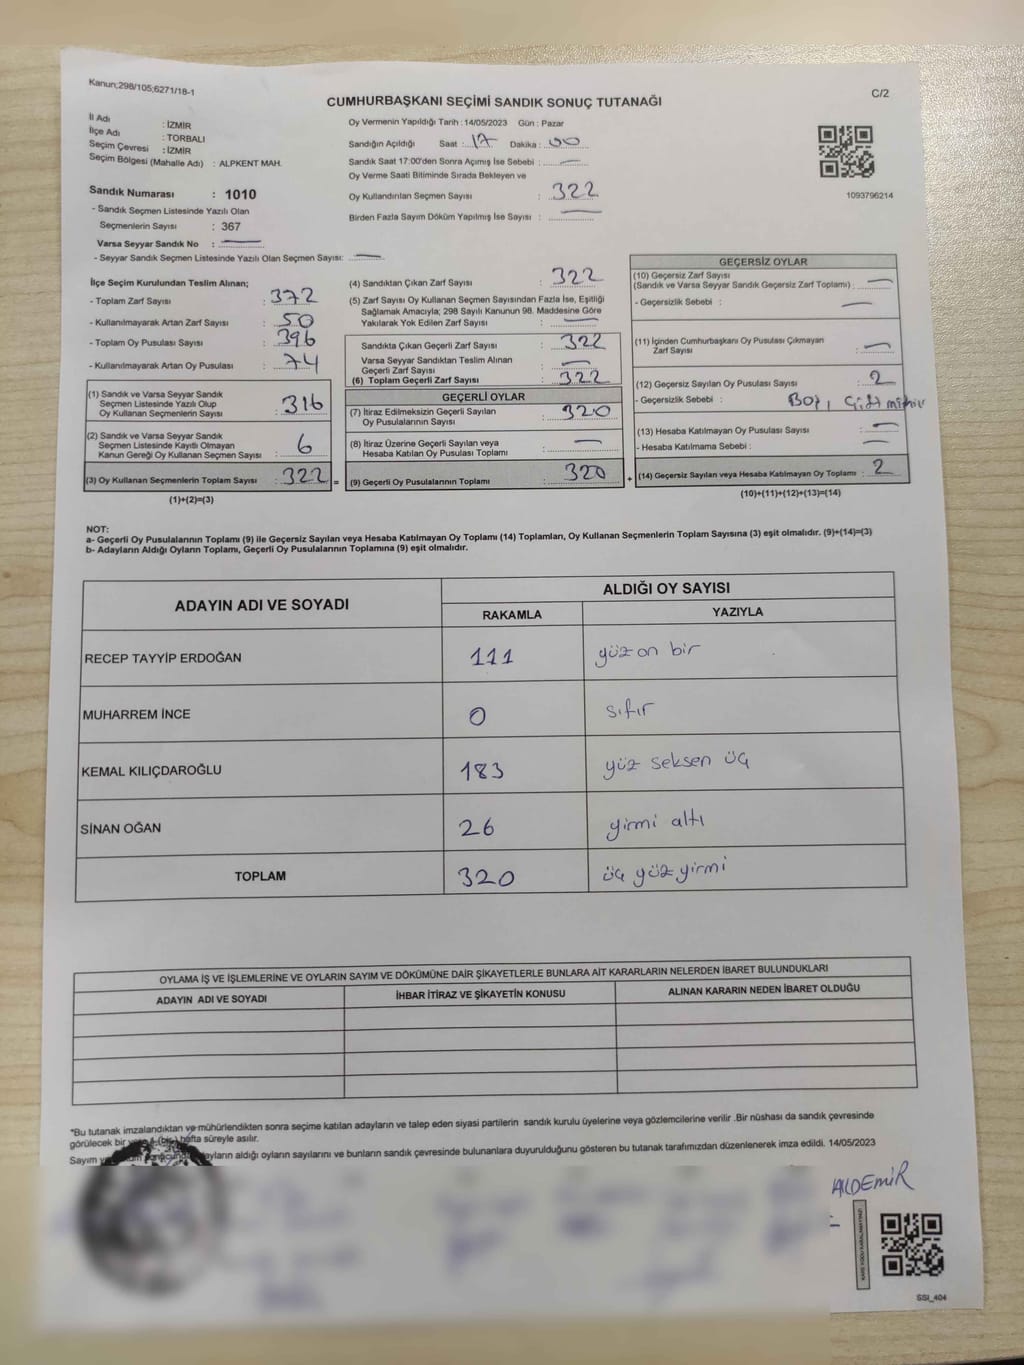 Kanun;298/105;6271/18-1
C/2
CUMHURBAŞKANI SEÇİMİ SANDIK SONUÇ TUTANAĞI
İl Adı : İZMİR
İlçe Adı : TORBALI
Seçim Çevresi : İZMİR
Seçim Bölgesi (Mahalle Adı) : ALPKENT MAH.
Sandık Numarası : 1010
- Sandık Seçmen Listesinde Yazılı Olan
Seçmenlerin Sayısı : 367
Varsa Seyyar Sandık No : —
- Seyyar Sandık Seçmen Listesinde Yazılı Olan Seçmen Sayısı: —
Oy Vermenin Yapıldığı Tarih :14/05/2023 Gün : Pazar
Sandığın Açıldığı Saat : 17 Dakika : 00
Sandık Saat 17:00'den Sonra Açımış İse Sebebi : —
Oy Verme Saati Bitiminde Sırada Bekleyen ve
Oy Kullandırılan Seçmen Sayısı : 322
Birden Fazla Sayım Döküm Yapılmış İse Sayısı : —
1093796214
İlçe Seçim Kurulundan Teslim Alınan;
- Toplam Zarf Sayısı : 372
- Kullanılmayarak Artan Zarf Sayısı : 50
- Toplam Oy Pusulası Sayısı : 396
- Kullanılmayarak Artan Oy Pusulası : 74
(1) Sandık ve Varsa Seyyar Sandık
Seçmen Listesinde Yazılı Olup
Oy Kullanan Seçmenlerin Sayısı : 316
(2) Sandık ve Varsa Seyyar Sandık
Seçmen Listesinde Kayıtlı Olmayan
Kanun Gereği Oy Kullanan Seçmen Sayısı : 6
(3) Oy Kullanan Seçmenlerin Toplam Sayısı : 322 =
(1)+(2)=(3)
(4) Sandıktan Çıkan Zarf Sayısı : 322
(5) Zarf Sayısı Oy Kullanan Seçmen Sayısından Fazla İse, Eşitliği
Sağlamak Amacıyla; 298 Sayılı Kanunun 98. Maddesine Göre
Yakılarak Yok Edilen Zarf Sayısı : —
Sandıkta Çıkan Geçerli Zarf Sayısı : 322
Varsa Seyyar Sandıktan Teslim Alınan
Geçerli Zarf Sayısı : —
(6) Toplam Geçerli Zarf Sayısı : 322
GEÇERLİ OYLAR
(7) İtiraz Edilmeksizin Geçerli Sayılan
Oy Pusulalarının Sayısı : 320
(8) İtiraz Üzerine Geçerli Sayılan veya
Hesaba Katılan Oy Pusulası Toplamı : —
(9) Geçerli Oy Pusulalarının Toplamı : 320 +
GEÇERSİZ OYLAR
(10) Geçersiz Zarf Sayısı
(Sandık ve Varsa Seyyar Sandık Geçersiz Zarf Toplamı) : —
- Geçersizlik Sebebi : —
(11) İçinden Cumhurbaşkanı Oy Pusulası Çıkmayan
Zarf Sayısı : —
(12) Geçersiz Sayılan Oy Pusulası Sayısı : 2
- Geçersizlik Sebebi : Boş, Çift mühür
(13) Hesaba Katılmayan Oy Pusulası Sayısı : —
- Hesaba Katılmama Sebebi : —
(14) Geçersiz Sayılan veya Hesaba Katılmayan Oy Toplamı : 2
(10)+(11)+(12)+(13)=(14)
NOT:
a- Geçerli Oy Pusulalarının Toplamı (9) ile Geçersiz Sayılan veya Hesaba Katılmayan Oy Toplamı (14) Toplamları, Oy Kullanan Seçmenlerin Toplam Sayısına (3) eşit olmalıdır. (9)+(14)=(3)
b- Adayların Aldığı Oyların Toplamı, Geçerli Oy Pusulalarının Toplamına (9) eşit olmalıdır.
ADAYIN ADI VE SOYADI ALDIĞI OY SAYISI
RAKAMLA YAZIYLA
RECEP TAYYİP ERDOĞAN 111 yüz on bir
MUHARREM İNCE 0 sıfır
KEMAL KILIÇDAROĞLU 183 yüz seksen üç
SİNAN OĞAN 26 yirmi altı
TOPLAM 320 üç yüz yirmi
OYLAMA İŞ VE İŞLEMLERİNE VE OYLARIN SAYIM VE DÖKÜMÜNE DAİR ŞİKAYETLERLE BUNLARA AİT KARARLARIN NELERDEN İBARET BULUNDUKLARI
ADAYIN ADI VE SOYADI İHBAR İTİRAZ VE ŞİKAYETİN KONUSU ALINAN KARARIN NEDEN İBARET OLDUĞU
*Bu tutanak imzalandıktan ve mühürlendikten sonra seçime katılan adayların ve talep eden siyasi partilerin sandık kurulu üyelerine veya gözlemcilerine verilir .Bir nüshası da sandık çevresinde
görülecek bir yere 1 (bir) hafta süreyle asılır.
Sayım adayların aldığı oyların sayılarını ve bunların sandık çevresinde bulunanlara duyurulduğunu gösteren bu tutanak tarafımızdan düzenlenerek imza edildi. 14/05/2023
AKDEMİR
KARE KODU KARALAMAYINIZ!
SSI_404